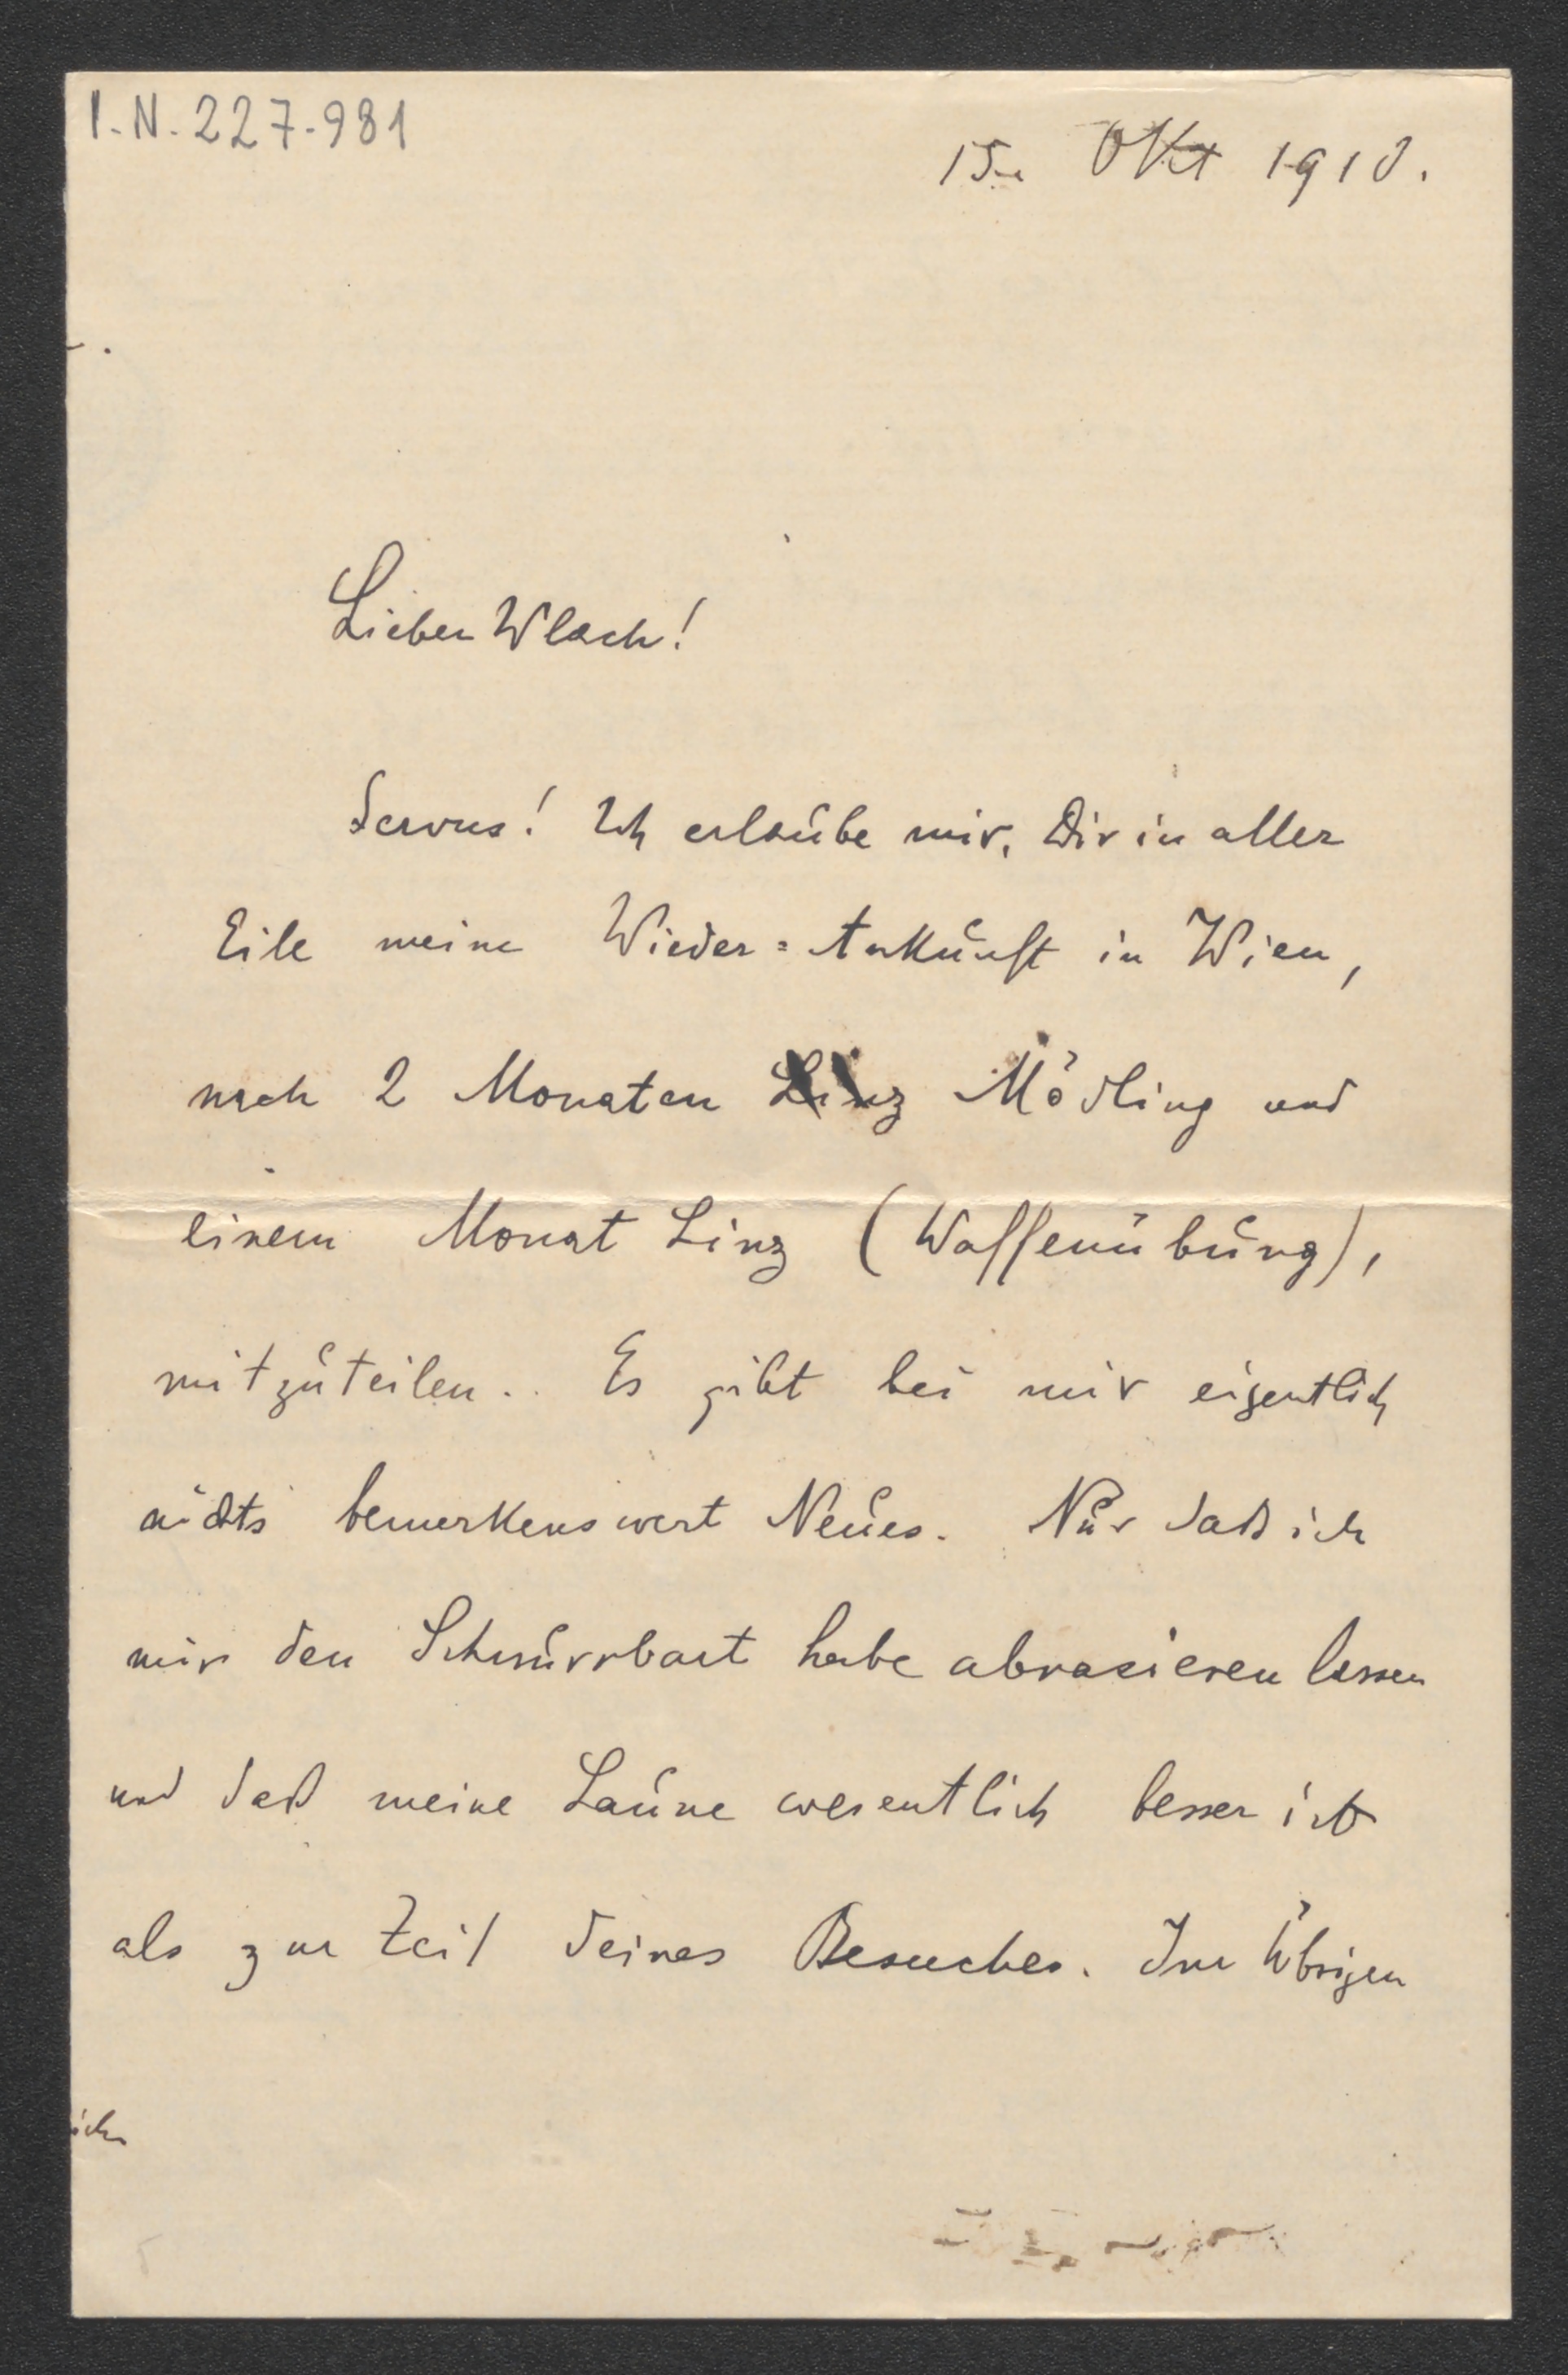 I.N. 227.981
15. Okt 1910.
Lieber Wlach!
Servus! Ich erlaube mir, Dir in aller
Eile meine Wieder=Ankunft in Wien,
nach 2 Monaten Linz Mödling und
einem Monat Linz (Waffenübung),
mitzuteilen. Es gibt bei mir eigentlich
nichts bemerkenswert Neues. Nur daß ich
mir den Schnurrbart habe abrasieren lassen
und daß meine Laune wesentlich besser ist
als zur Zeit deines Besuches. Im Übrigen
ich